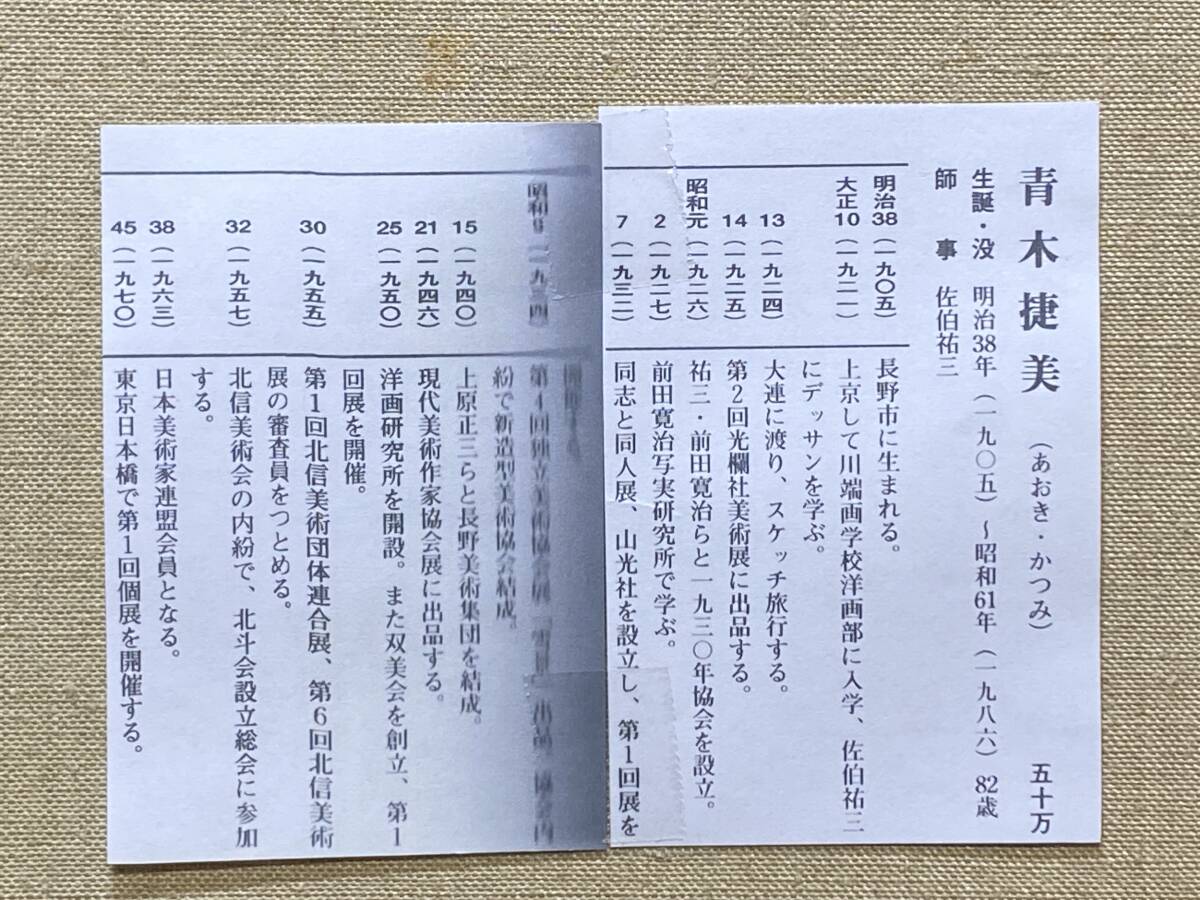 青木捷美 (あおき・かつみ) 五十万
生誕・没 明治38年(一九〇五)~昭和61年(一九八六) 82歳
師事 佐伯祐三
明治38(一九〇五) 長野市に生まれる。
大正10(一九二一) 上京して川端画学校洋画部に入学、佐伯祐三
にデッサンを学ぶ。
13(一九二四) 大連に渡り、スケッチ旅行する。
14(一九二五) 第2回光欄社美術展に出品する。
昭和元(一九二六) 祐三・前田寛治らと一九三〇年協会を設立。
2(一九二七) 前田寛治写実研究所で学ぶ。
7(一九三二) 同志と同人展、山光社を設立し、第1回展を
開催する。
昭和9(一九三四) 第4回独立美術協会展「雪景」出品 協会内
紛で新造型美術協会結成。
15(一九四〇) 上原正三らと長野美術集団を結成。
21(一九四六) 現代美術作家協会展に出品する。
25(一九五〇) 洋画研究所を開設。また双美会を創立、第1
回展を開催。
30(一九五五) 第1回北信美術団体連合展、第6回北信美術
展の審査員をつとめる。
32(一九五七) 北信美術会の内紛で、北斗会設立総会に参加
する。
38(一九六三) 日本美術家連盟会員となる。
45(一九七〇) 東京日本橋で第1回個展を開催する。